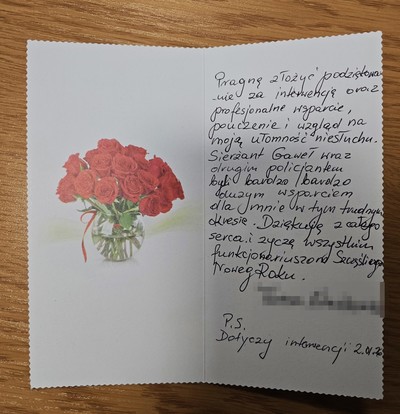 Pragnę złożyć podziękowa
-nie za interwencję oraz
profesjonalne wsparcie,
pouczenie i wzgląd na
moją ułomność niesłuchu.
Sierżant Gaweł wraz
drugim policjantem
byli bardzo/bardzo
dużym wsparciem
dla mnie w tym trudnym
okresie. Dziękuję z całego
serca i życzę wszystkim
funkcjonariuszom Szczęśliwego
Nowego Roku.
P.S.
Dotyczy interwencji 2.01.26